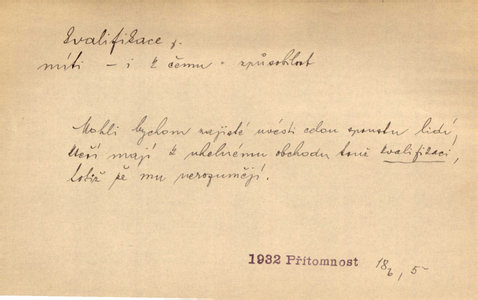 kvalifikace f.
míti – i k čemu - způsobilost
Mohli bychom zajisté uvésti celou spoustu lidí,
kteří mají k uhelnému obchodu touž kvalifikaci,
totiž že mu nerozumějí.
1932 Přítomnost 18/6, 5